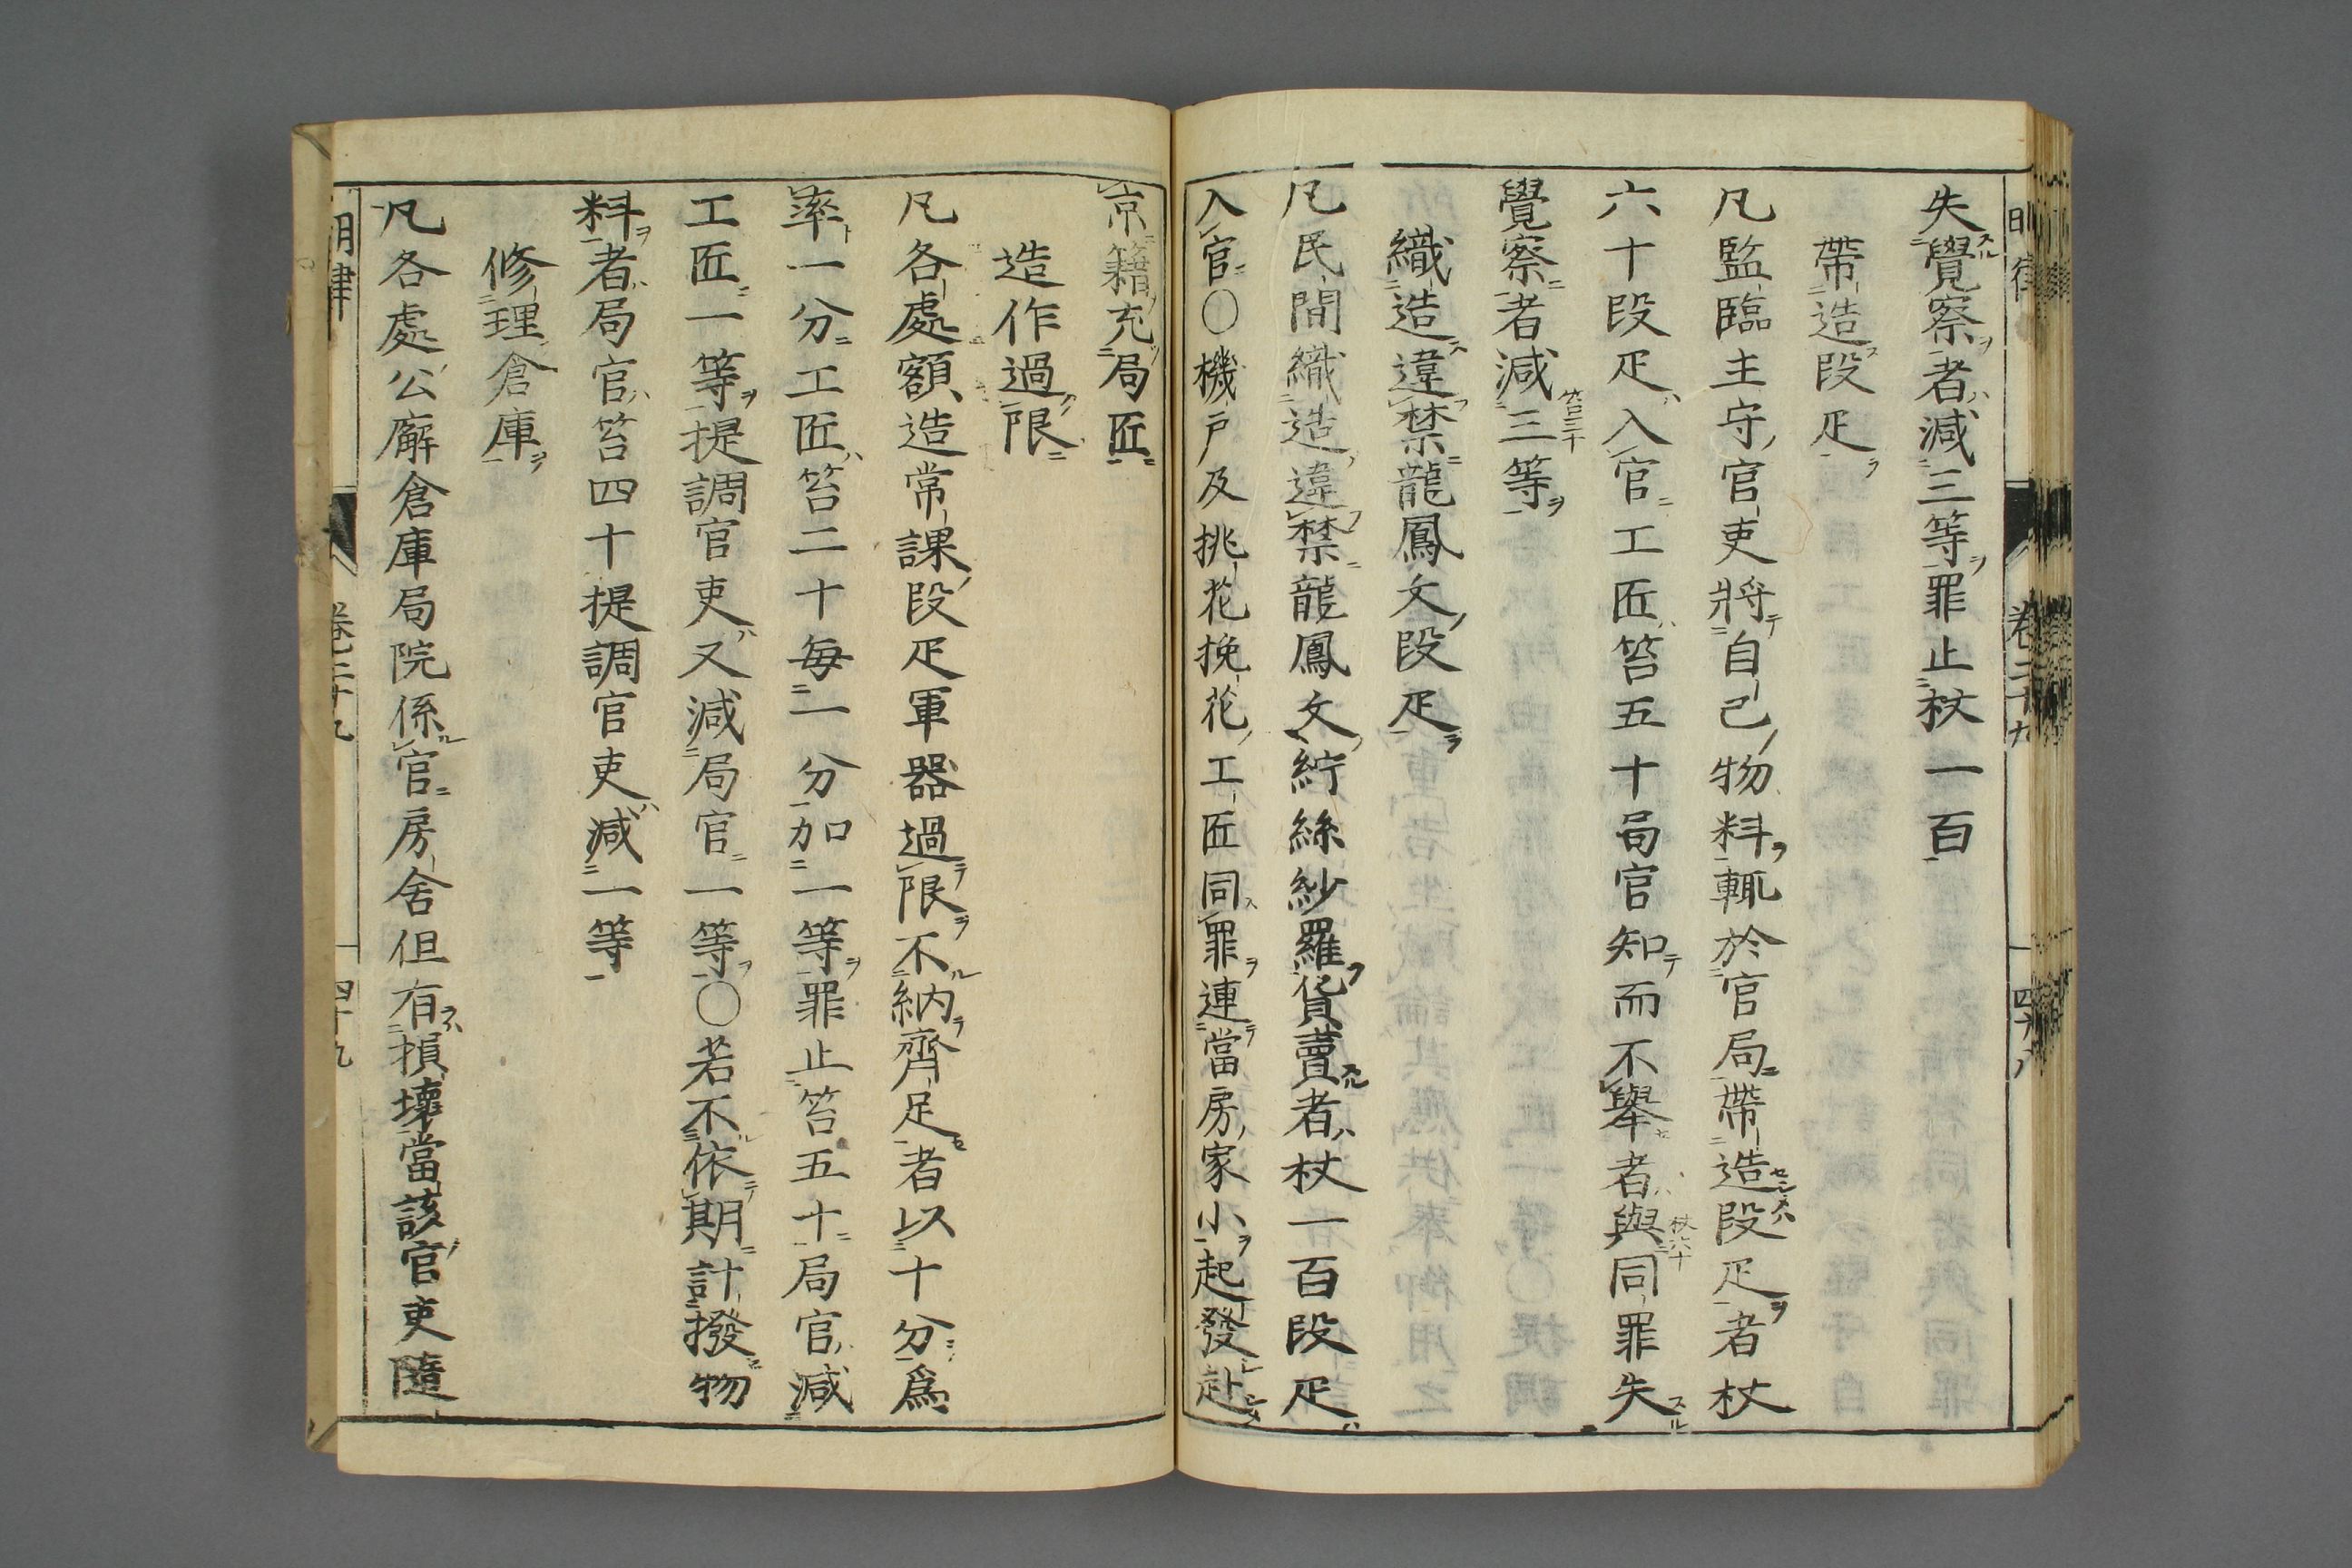 失覺察者減三等罪止杖一百
帶造段疋
凡監臨主守官吏將自己物料輒於官局帶造段疋者杖
六十段疋入官工匠笞五十局官知而不舉者與同罪失
杖六十
覺察者減三等
笞三十
織造違禁龍鳳文段疋
凡民間織造違禁龍鳳文紵絲紗羅貨賣者杖一百段疋
入官○機戶及挑花挽花工匠同罪連當房家小起發赴
京籍充局匠
造作過限
凡各處額造常課段疋軍器過限不納齊足者以十分爲
率一分工匠笞二十每一分加一等罪止笞五十局官減
工匠一等提調官吏又減局官一等○若不依期計撥物
料者局官笞四十提調官吏減一等
修理倉庫
凡各處公廨倉庫局院係官房舍但有損壞當該官吏隨
明律 卷二十九 四十九